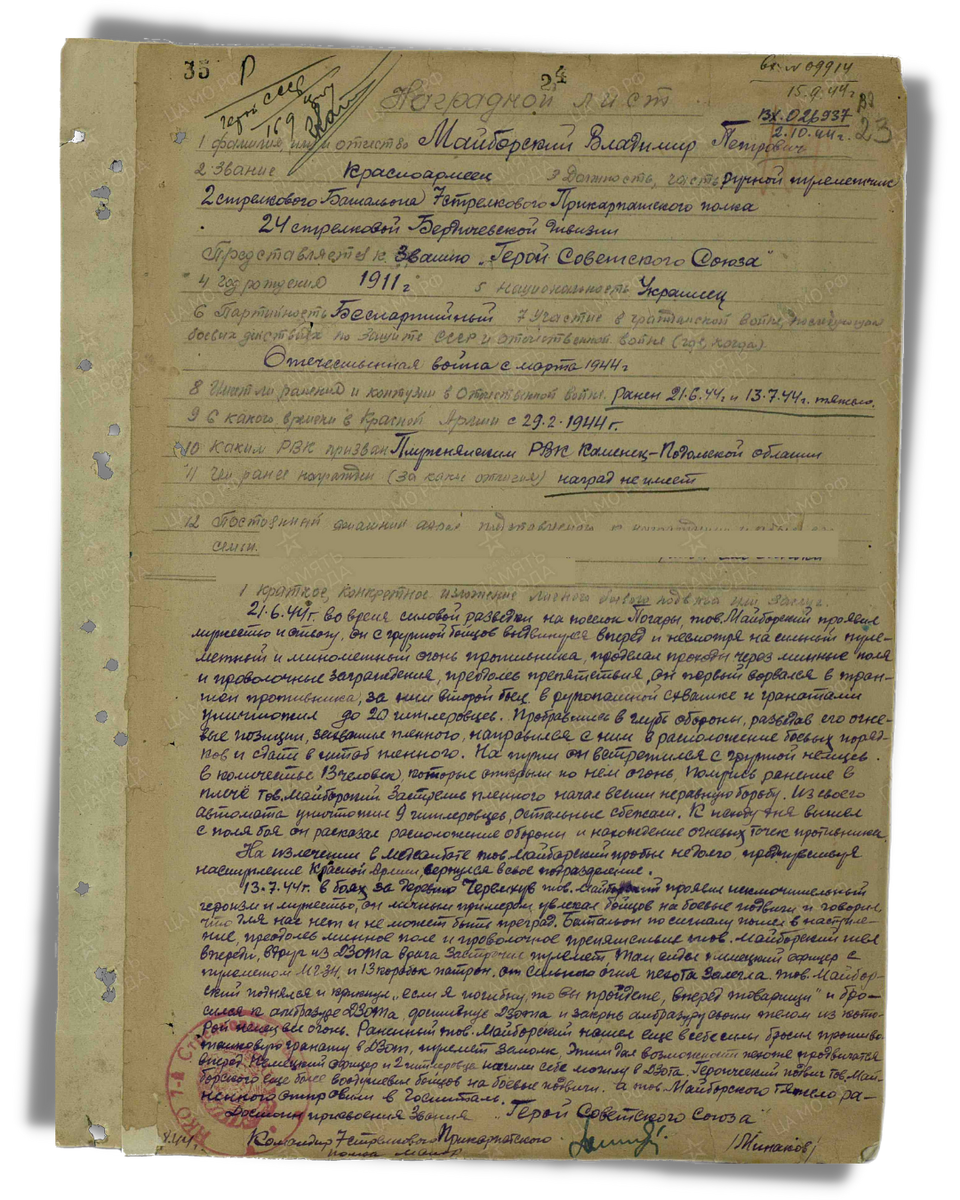 35
24
вх. № 09914
15.9.44г
Вх. 026937
2.10.44г.
23
герой СССР
16 9
Наградной лист
1 фамилия, имя и отчество Майборский Владимир Петрович
2 Звание Красноармеец 3 Должность, часть ручной пулеметчик
2 стрелкового Батальона 7 стрелкового Прикарпатского полка
24 стрелковой Бердичевской дивизии
Представляется к Званию „Герой Советского Союза"
4 Год рождения 1911 г 5 национальность Украинец
6 Партийность Беспартийный 7 Участие в гражданской войне, последующих
боевых действиях по защите СССР и отечественной войне (где, когда)
Отечественная война с марта 1944 г
8 Имеет ли ранения и контузии в Отечественной войне. ранен 21.6.44г и 13.7.44г. тяжело.
9 С какого времени в Красной Армии с 29.2.1944 г.
10 Каким РВК призван РВК Каменец-Подольской области
11 Чем ранее награжден (за какие отличия) наград не имеет
12 Постоянный домашний адрес
семьи.
1 Краткое, конкретное изложение личного боевого подвига или заслуг.
21.6.44г. во время силовой разведки на поселок Погары, тов. Майборский проявил
мужество и отвагу, он с группой бойцов выдвинулся вперед и несмотря на сильный пуле-
метный и минометный огонь противника, проделал проходы через минные поля
и проволочные заграждения, преодолев препятствия, он первый ворвался в тран-
шеи противника, за ним второй боец в рукопашной схватке и гранатами
уничтожил до 20 гитлеровцев. Пробравшись в глубь обороны, разведав его огне-
вые позиции, захватив пленного, направился с ним в расположение боевых поряд-
ков и сдать в штаб пленного. На пути он встретился с группой немцев
в количестве 13 человек, которые открыли по нем огонь, получив ранение в
плечо тов. Майборский застрелив пленного начал вести неравную борьбу. Из своего
автомата уничтожил 9 гитлеровцев, остальные сбежали. К исходу дня вышел
с поля боя он рассказал расположение обороны и нахождение огневых точек противника
На излечении в медсанбате тов. Майборский пробыл недолго, предчувствуя
наступление Красной Армии, вернулся в свое подразделение.
13.7.44г. в боях за деревню Черехув тов. Майборский проявил исключительный
героизм и мужество, он личным примером увлекал бойцов на боевые подвиги и говорил
что для нас нет и не может быть преград. Батальон по сигналу пошел в наступле-
ние, преодолев минное поле и проволочное препятствие тов. Майборский шел
впереди, вдруг из ДЗОТа врага застрочил пулемет там сидел немецкий офицер с
пулеметом МГ-34, и 13 коробок патрон, от сильного огня пехота залегла тов. Майбор-
ский поднялся и крикнул „если я погибну, то вы пройдете, вперед товарищи" и бро-
сился к амбразуре ДЗОТа, достигнув ДЗОТа и закрыл амбразуру своим телом из кото-
рой немец вел огонь. Раненный тов. Майборский нашел еще в себе силы бросил противо-
танковую гранату в ДЗОТ, пулемет замолк. Этим дал возможность пехоте продвигатся
вперед. Немецкий офицер и 2 гитлеровца нашли себе могилу в ДЗОТа. Героический подвиг тов. Май-
борского еще более воодушевил бойцов на боевые подвиги. а тов. Майборского тяжело ра-
ненного отправили в госпиталь.
Достоин присвоения Звания „Герой Советского Союза"
Командир 7 стрелкового Прикарпатского
полка майор /Минаков/